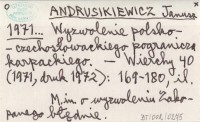 ANDRUSIKIEWICZ Janusz
1971... Wyzwolenie polsko-
-czechosłowackiego pogranicza
karpackiego. — Wierchy 40
(1971, druk 1972): 169-180, il.
M.in. o wyzwoleniu Zako-
panego błędnie.